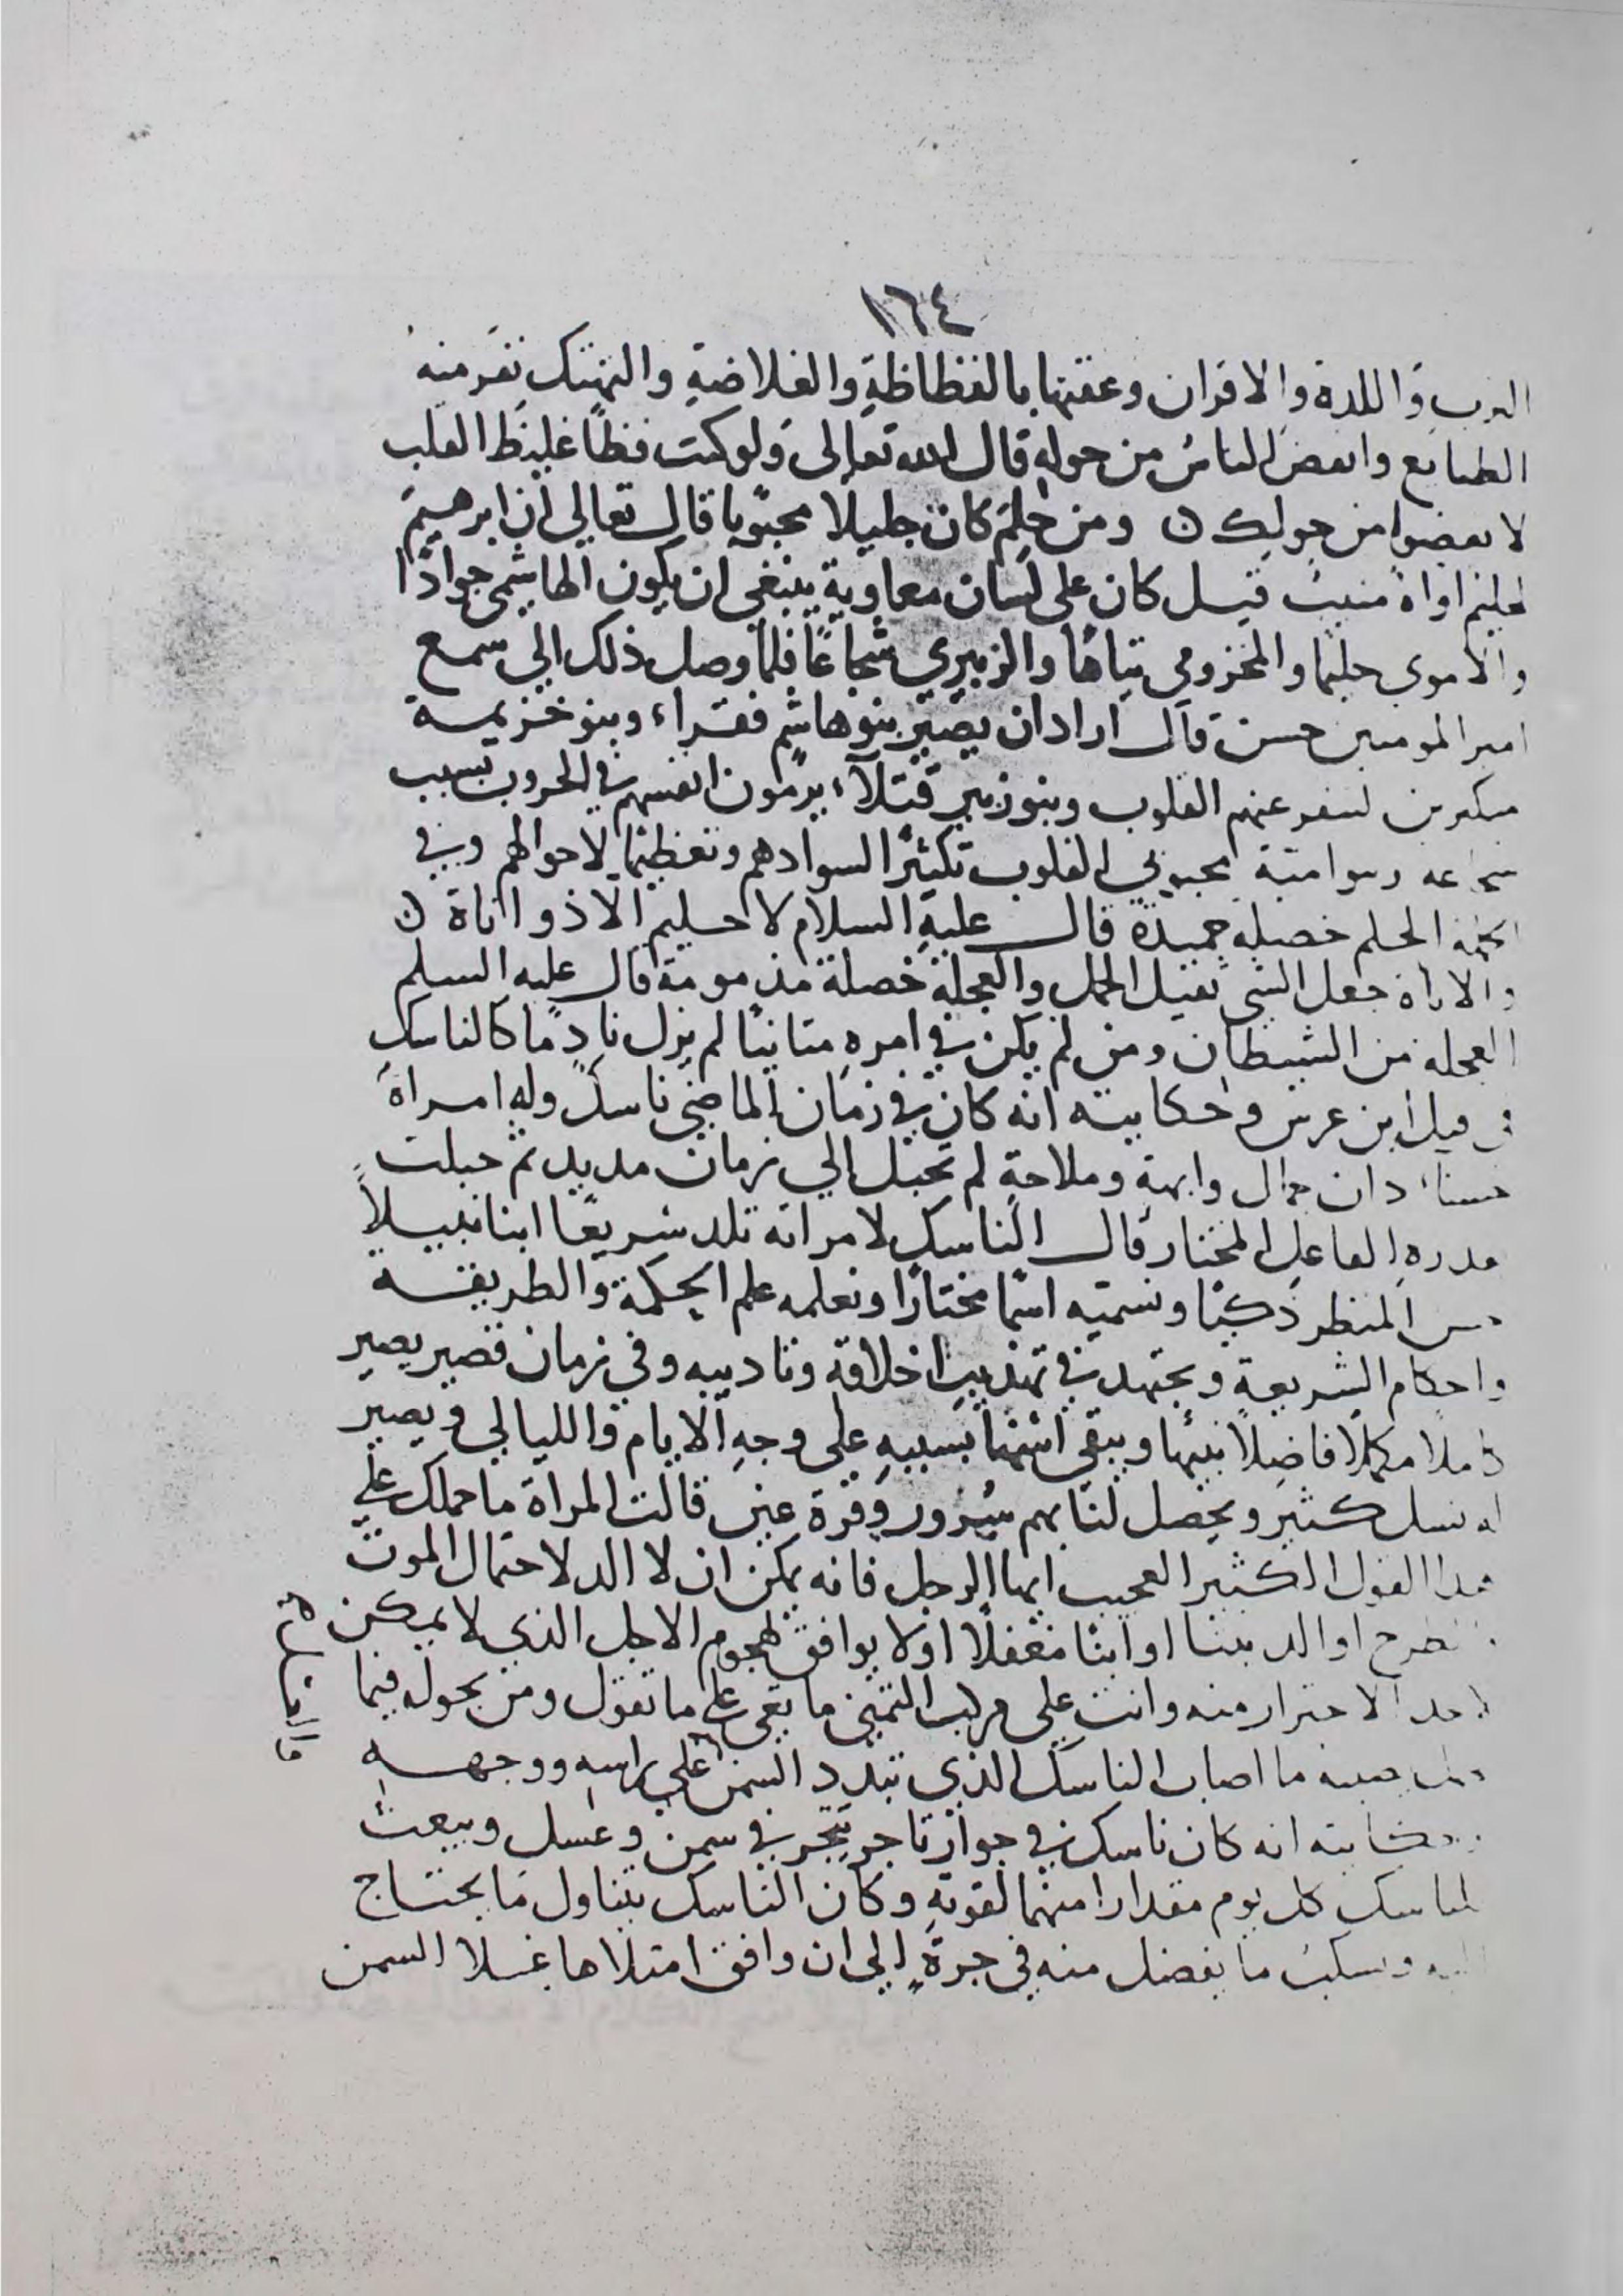 ١٦٤
الترب واللدة والاقران وعقبها بالفظاظة والغلاضة والتهتك تنفر منه
الطبائع وانفض الناس من حوله قال الله تعالى ولو كنت فظا غليظ القلب
لانفضوا من حولك ن ومن حلم كان جليلا محبوبا قال تعالي ان ابرهيم
لحليم اواه منيب قيل كان على لسان معاوية ينبغي ان يكون الهاشمي جوادا
والاموى حليما والمخزومي تياها والزبيري شجاعا فلما وصل ذلك الي سمع
امير المومنين حسن قال اراد ان يصير بنو هاشم فقراء وبنو خزيمة
متكبرين لتنفر عنهم القلوب وبنو زبير قتلاء يرمون انفسهم في الحروب بسبب
شجاعة وبنو امية محبوبي القلوب تكثيرا لسوادهم وتعظيما لاحوالهم وفي
الحلم خصيلة حميدة قال عليه السلام لا حليم الا ذو اناة ن
والاناة جعل الشي ثقيل الحمل والعجلة خصلة مذمومة قال عليه السلم
العجلة من الشيطان ومن لم يكن في امره متانيا لم يزل نادما كالناسك
في قتل ابن عرس وحكايته انه كان في زمان الماضي ناسك وله امراة
حسناء ذات جمال وابهة وملاحة لم تحبل الي زمان مديد ثم حبلت
بقدرة الفاعل المختار قال الناسك لامراته تلد سريعا ابنا نبيلا
حسن المنظر ذكيا ونسميه اسما مختارا ونعلمه علم الحكمة والطريقة
واحكام الشريعة ونجتهد في تهذيب اخلاقه وتاديبه وفي زمان قصير يصير
كاملا مكملا فاضلا نبيها ويبقى اسمنا بسببه على وجه الايام والليالي ويصير
له نسل كثير ويحصل لنا بهم سرور وقرة عين قالت المراة ما حملك على
هذا القول الكثير العجيب ايها الرجل فانه يمكن ان لا الد لاحتمال الموت
او الد بنتا او ابنا مغفلا اولا يوافق لهجوم الاجل الذي لا يمكن
لاحد الاحتراز منه وانت على مركب التمني ما بقي على ما تقول ومن يجول فيما
ما اصاب الناسك الذي تبدد السمن على راسه ووجهه
وحكايته انه كان ناسك في جوار تاجر يتجر في سمن وعسل ويبعث
للناسك كل يوم مقدارا منهما لقوته وكان الناسك يتناول ما يحتاج
اليه ويسكب ما يفضل منه في جرة الي ان وافق امتلاها غسلا السمن